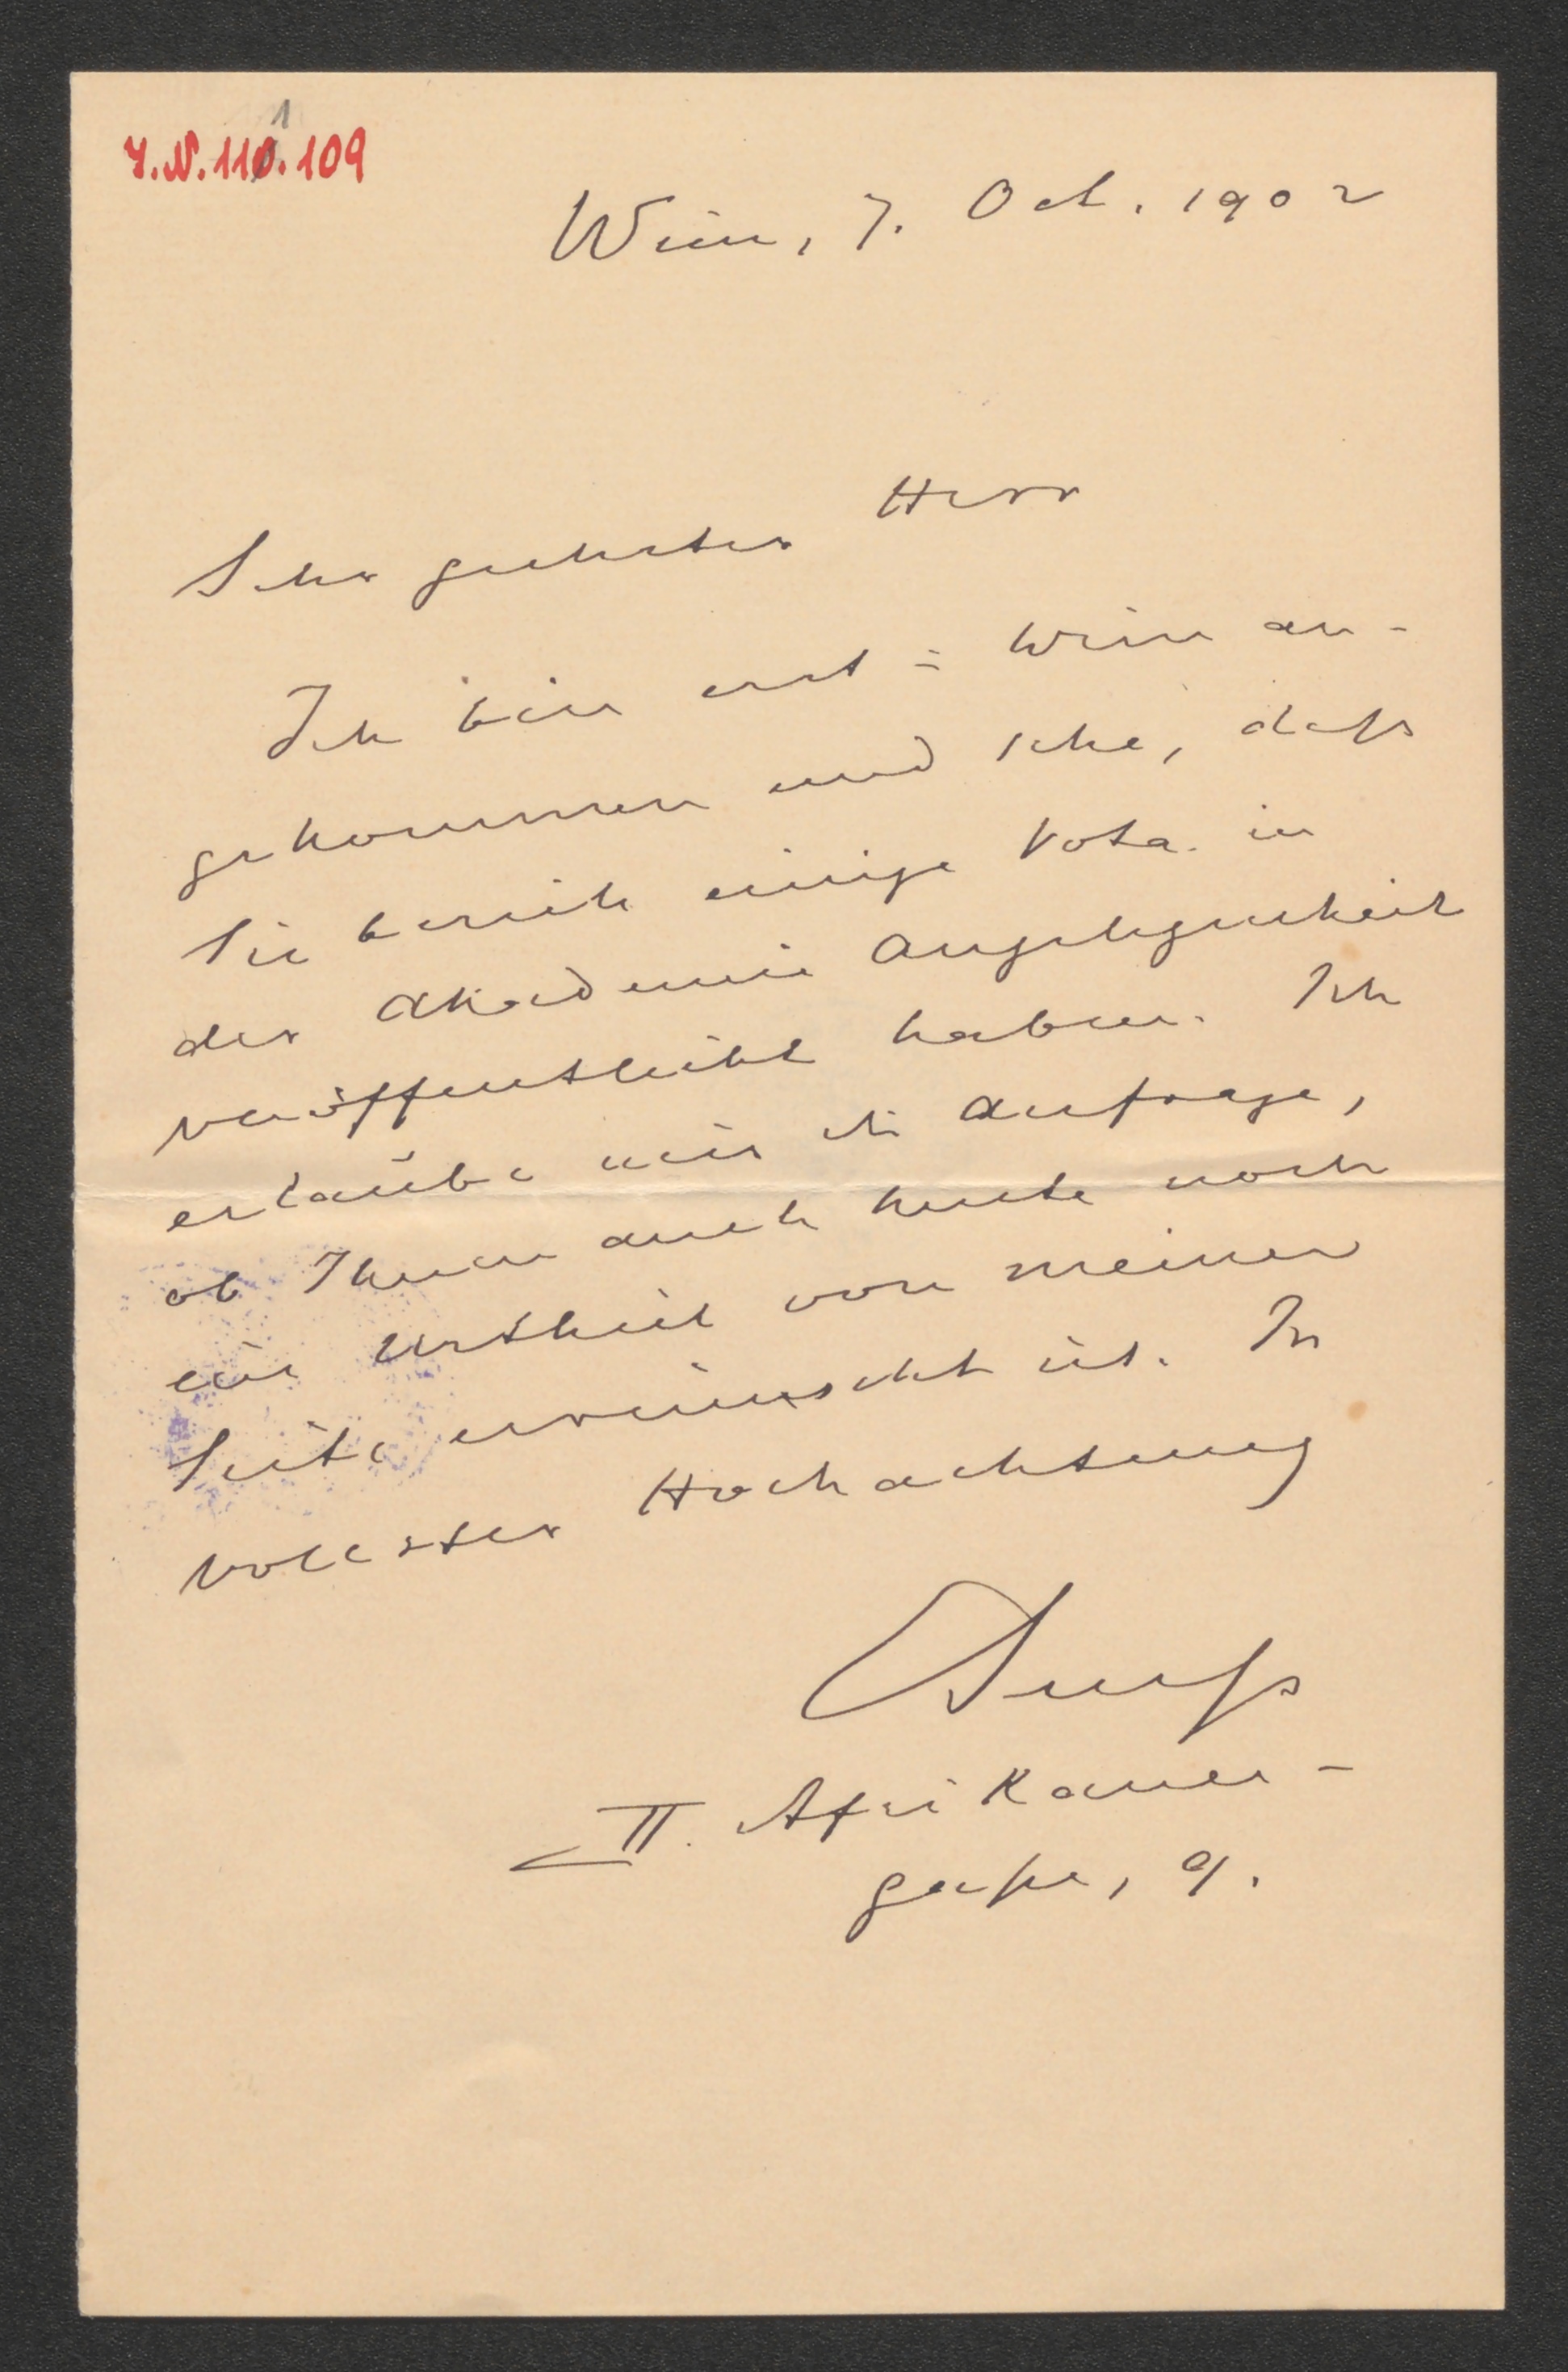 J.N. 110.109
1
Wien, 7. Oct. 1902
Sehr geehrter Herr
Ich bin erst in Wien an-
gekommen und sehe, daß
Sie bereits einige Vota in
der Akademie Angelegenheit
veröffentlicht haben. Ich
erlaube mir die Anfrage,
ob Ihnen auch heute noch
ein Urtheil von meiner
Seite erwünscht ist. In
vollster Hochachtung
ESueß
II. Afrikaner-
gaße, 9.